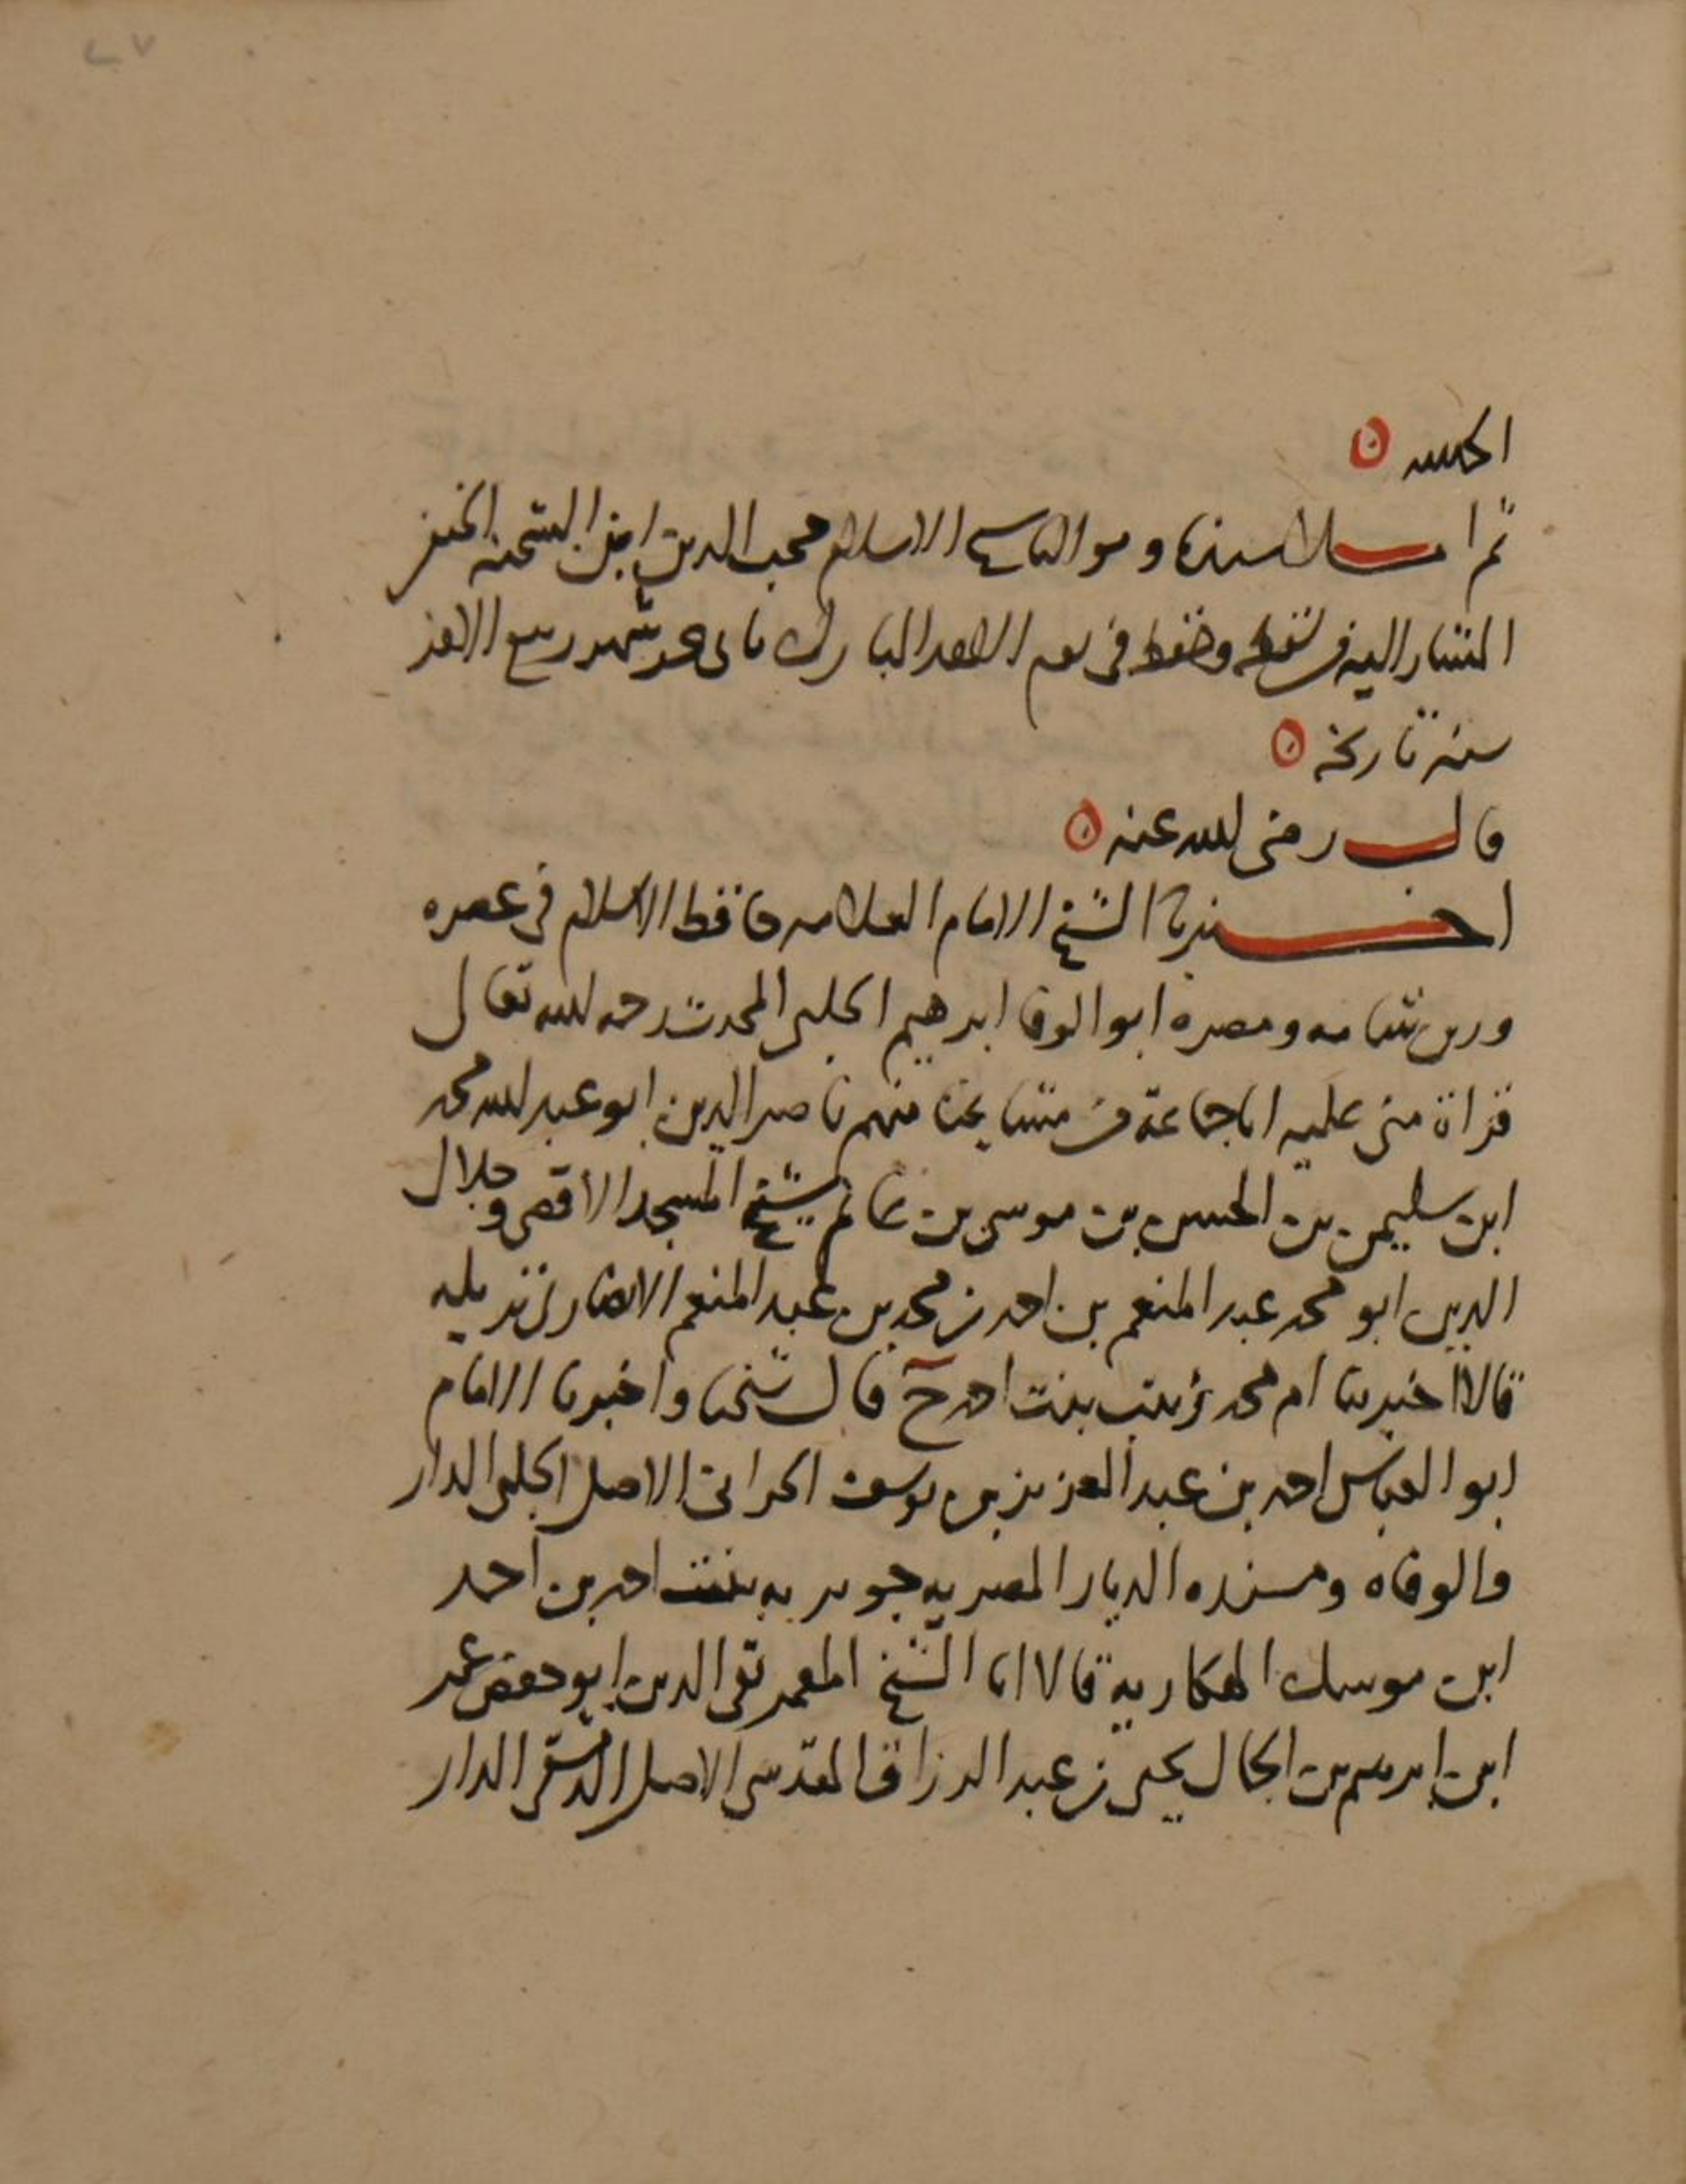 ٢٧
ثم املا سيدنا ومولانا شيخ الاسلام محب الدين ابن الشحنه الحنفى
المشار اليه من لفظه وحفظه فى يوم الاحد المبارك شهر ربيع الاخر
سنه تاريخه
قال رضى الله عنه
اخبرنا الشيخ الامام العلامه حافظ الاسلام فى عصره
شامه ومصره ابو الوفا ابرهيم الحلبى المحدث رحمه الله تعالى
قراة منى عليه انا جماعة من مشايخنا منهم ناصر الدين ابو عبد الله محمد
ابن سليمن بن الحسن بن موسى بن غانم شيخ المسجد الاقصى وجلال
الدين ابو محمد عبد المنعم بن احمد بن محمد بن عبد المنعم الانصارى نزيله
قالا اخبرتنا ام محمد زينب بنت احمد ح قال شيخنا واخبرنا الامام
ابو العباس احمد بن عبد العزيز بن يوسف الحرانى الاصل الحلبى الدار
والوفاه ومسنده الديار المصريه جويريه بنت احمد بن احمد
ابن موسك الهكاريه قالا انا الشيخ المعمر تقى الدين ابو حفص عمر
ابن ابرهيم بن الجمال يحيى بن عبد الرزاق المقدسى الاصل الدمشقى الدار